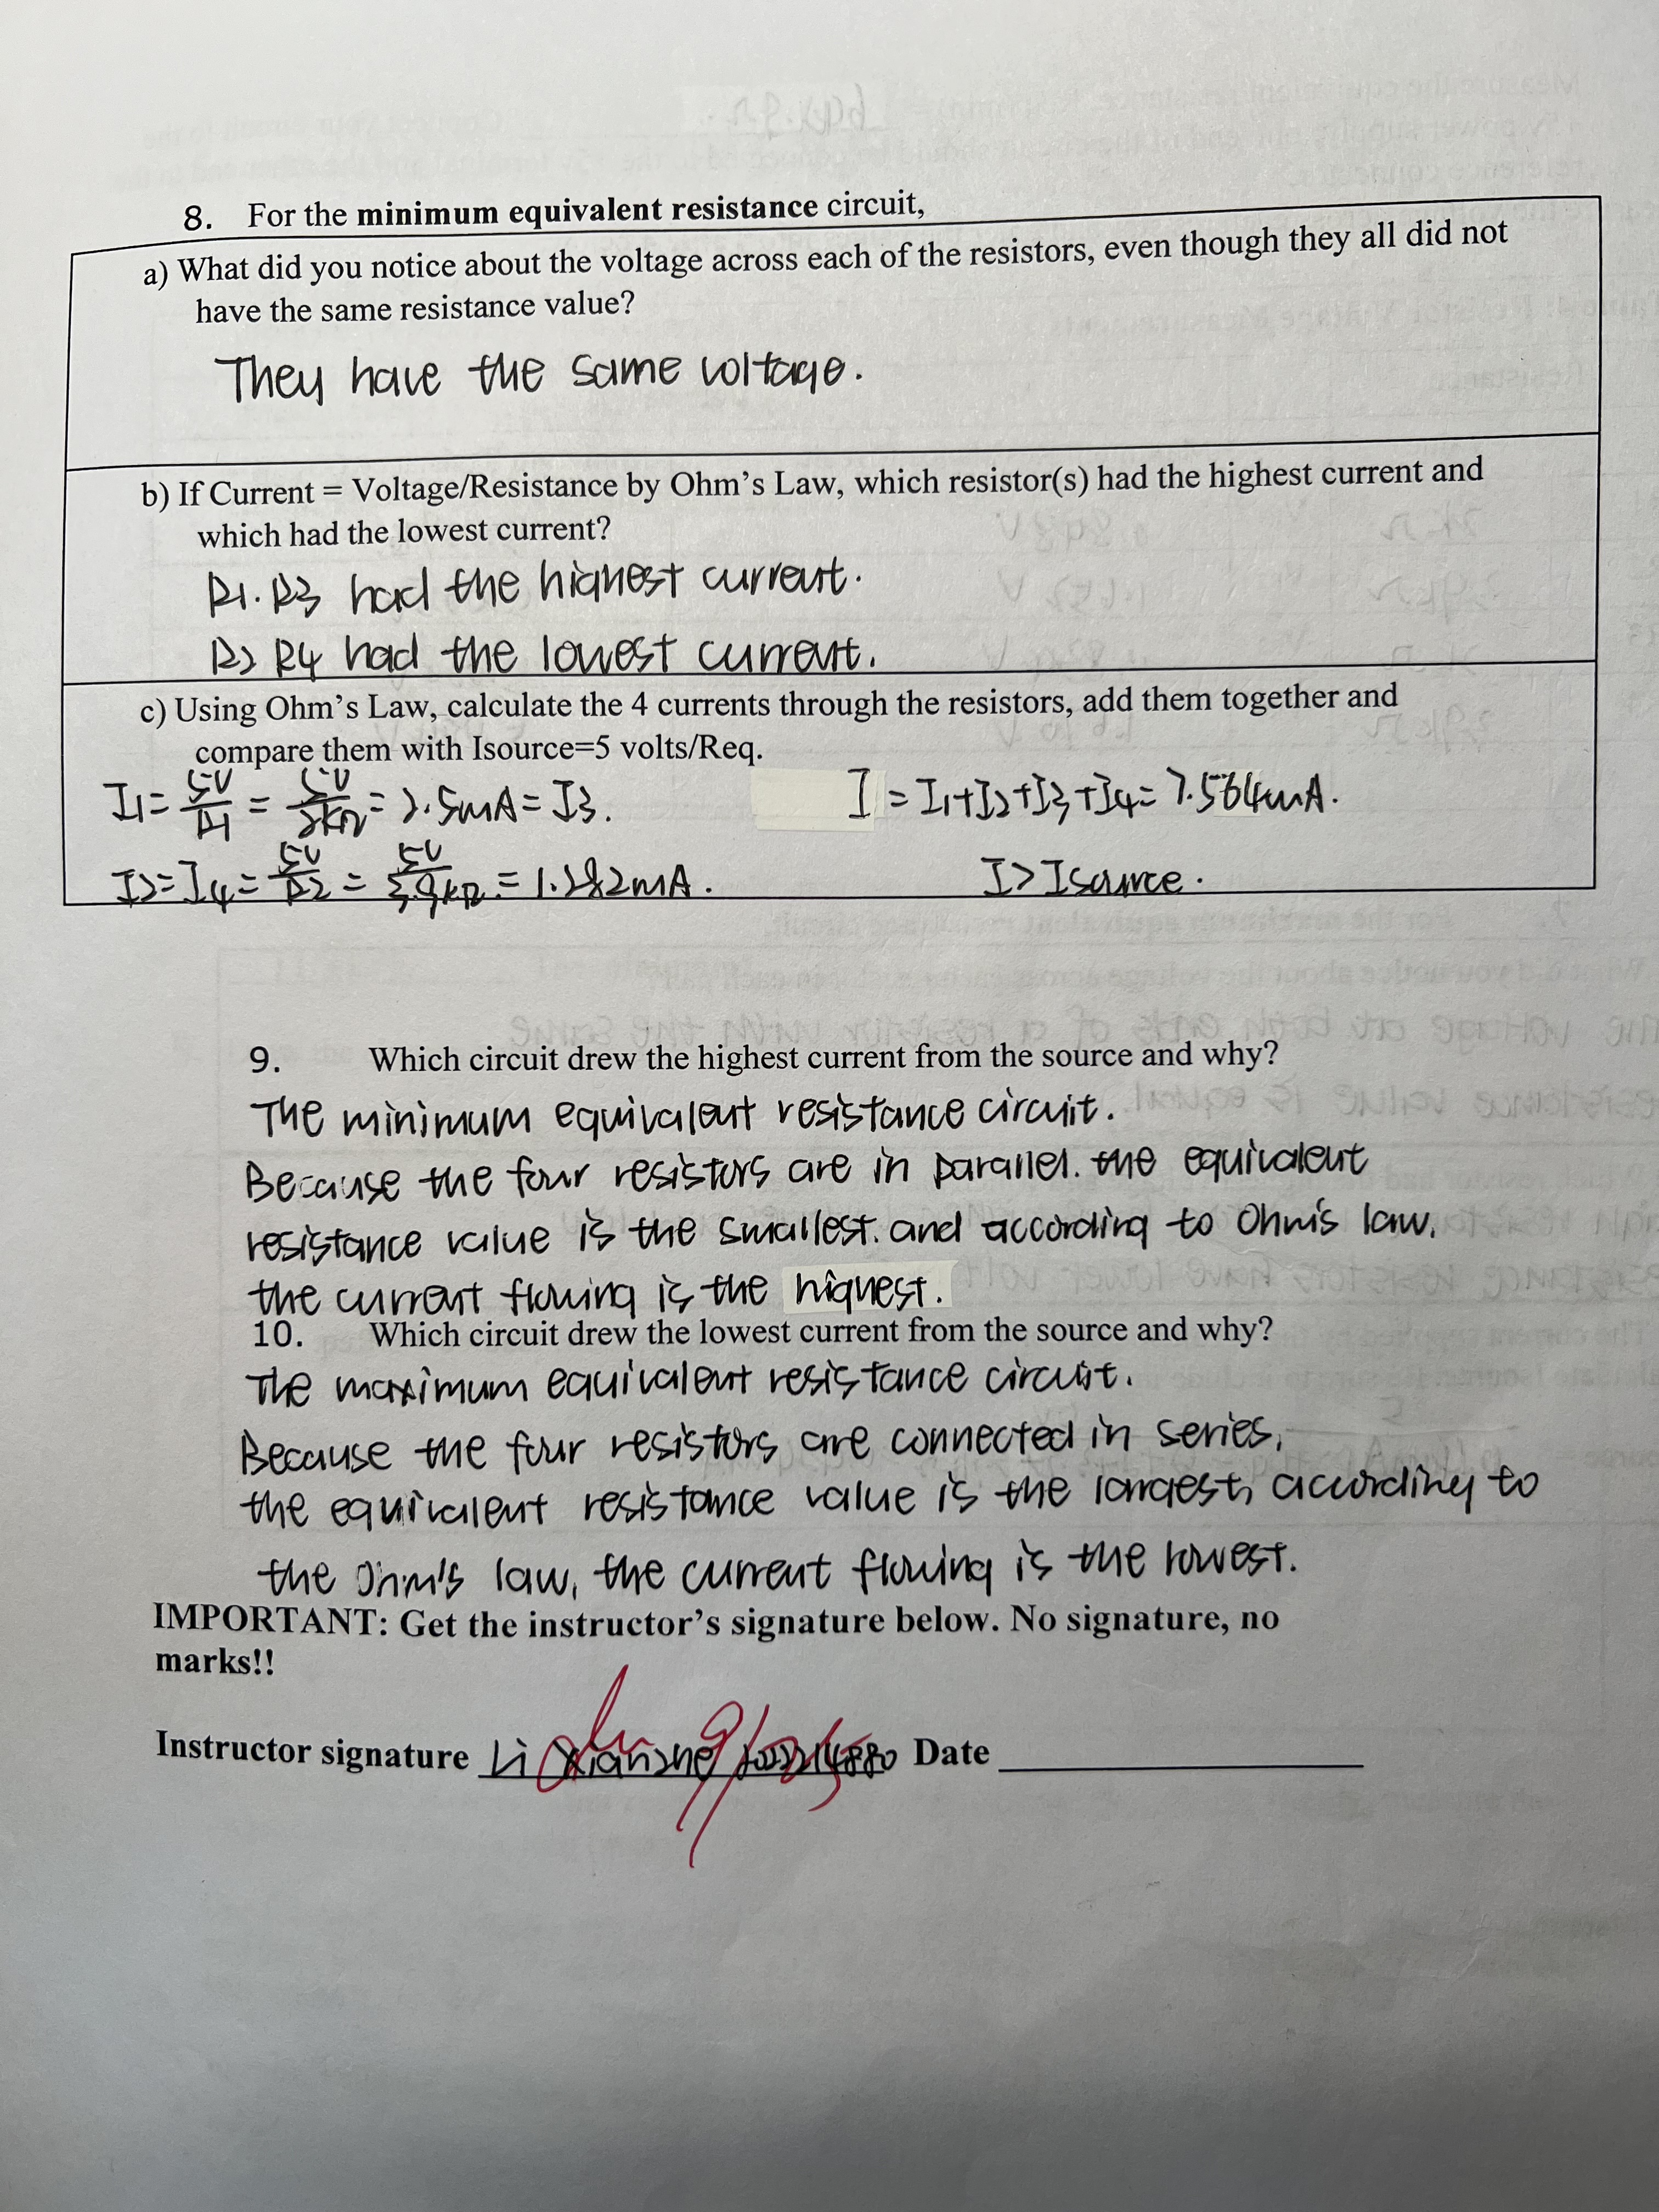 8. For the minimum equivalent resistance circuit,
a) What did you notice about the voltage across each of the resistors, even though they all did not
have the same resistance value?
They have the same voltage.
b) If Current = Voltage/Resistance by Ohm's Law, which resistor(s) had the highest current and
which had the lowest current?
R1. R3 had the highest current.
R2 R4 had the lowest current.
c) Using Ohm's Law, calculate the 4 currents through the resistors, add them together and
compare them with Isource=5 volts/Req.
I1 = 5V/R1 = 5V/2kΩ = 2.5mA = I3.
I = I1+I2+I3+I4 = 7.564mA.
I2 = I4 = 5V/R2 = 5V/3.9kΩ = 1.282mA.
I > Isource.
9. Which circuit drew the highest current from the source and why?
The minimum equivalent resistance circuit.
Because the four resistors are in parallel. the equivalent
resistance value is the smallest. and according to Ohm's law,
the current flowing is the highest.
10. Which circuit drew the lowest current from the source and why?
The maximum equivalent resistance circuit.
Because the four resistors are connected in series,
the equivalent resistance value is the largest, according to
the Ohm's law, the current flowing is the lowest.
IMPORTANT: Get the instructor's signature below. No signature, no
marks!!
Instructor signature Li Date